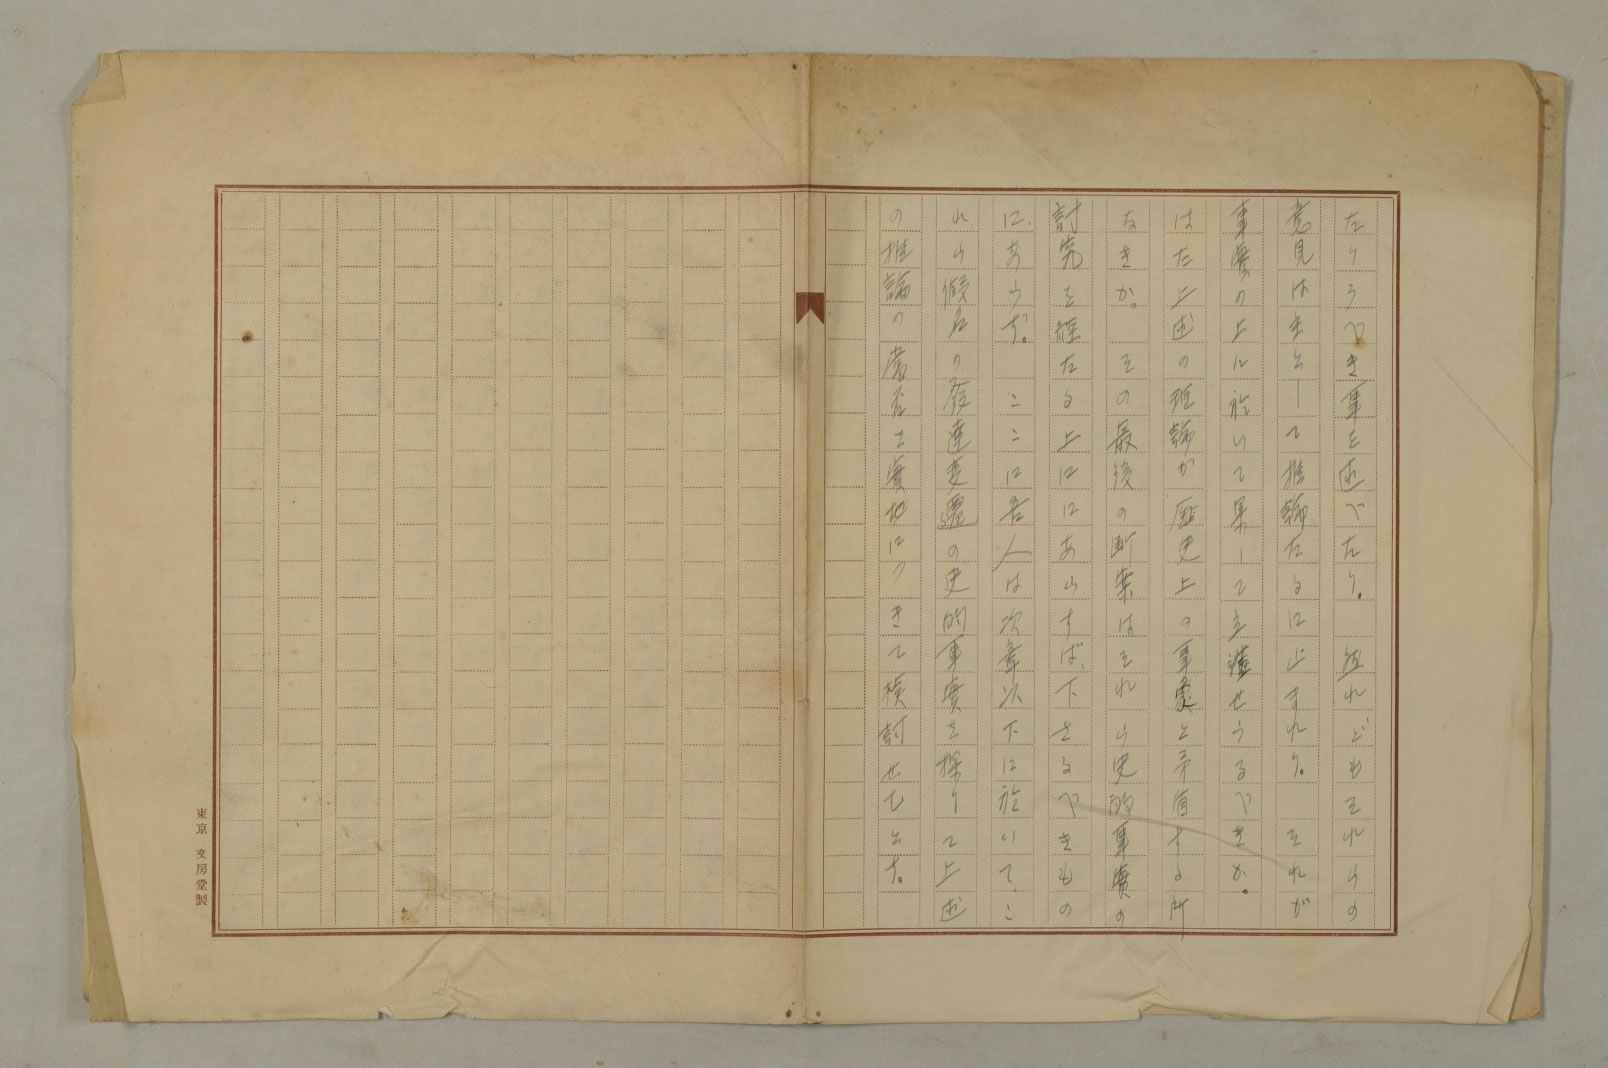 たりうべき事を述べたり。然れどもそれらの
意見は主として推論たるに止まれり。それが
事實の上に於いて果して立證せらるべきか。
はた上述の理論が歴史上の事實と矛盾する所
なきか。その最後の断案はそれら史的事實の
討究を経たる上にはあらずば、下さるべきもの
にあらず。ここに吾人は次章以下に於いて、こ
れら假名の發達変遷の史的事實を探りて上述
の推論の當否を實地につきて検討せむとす。
東京 文房堂製